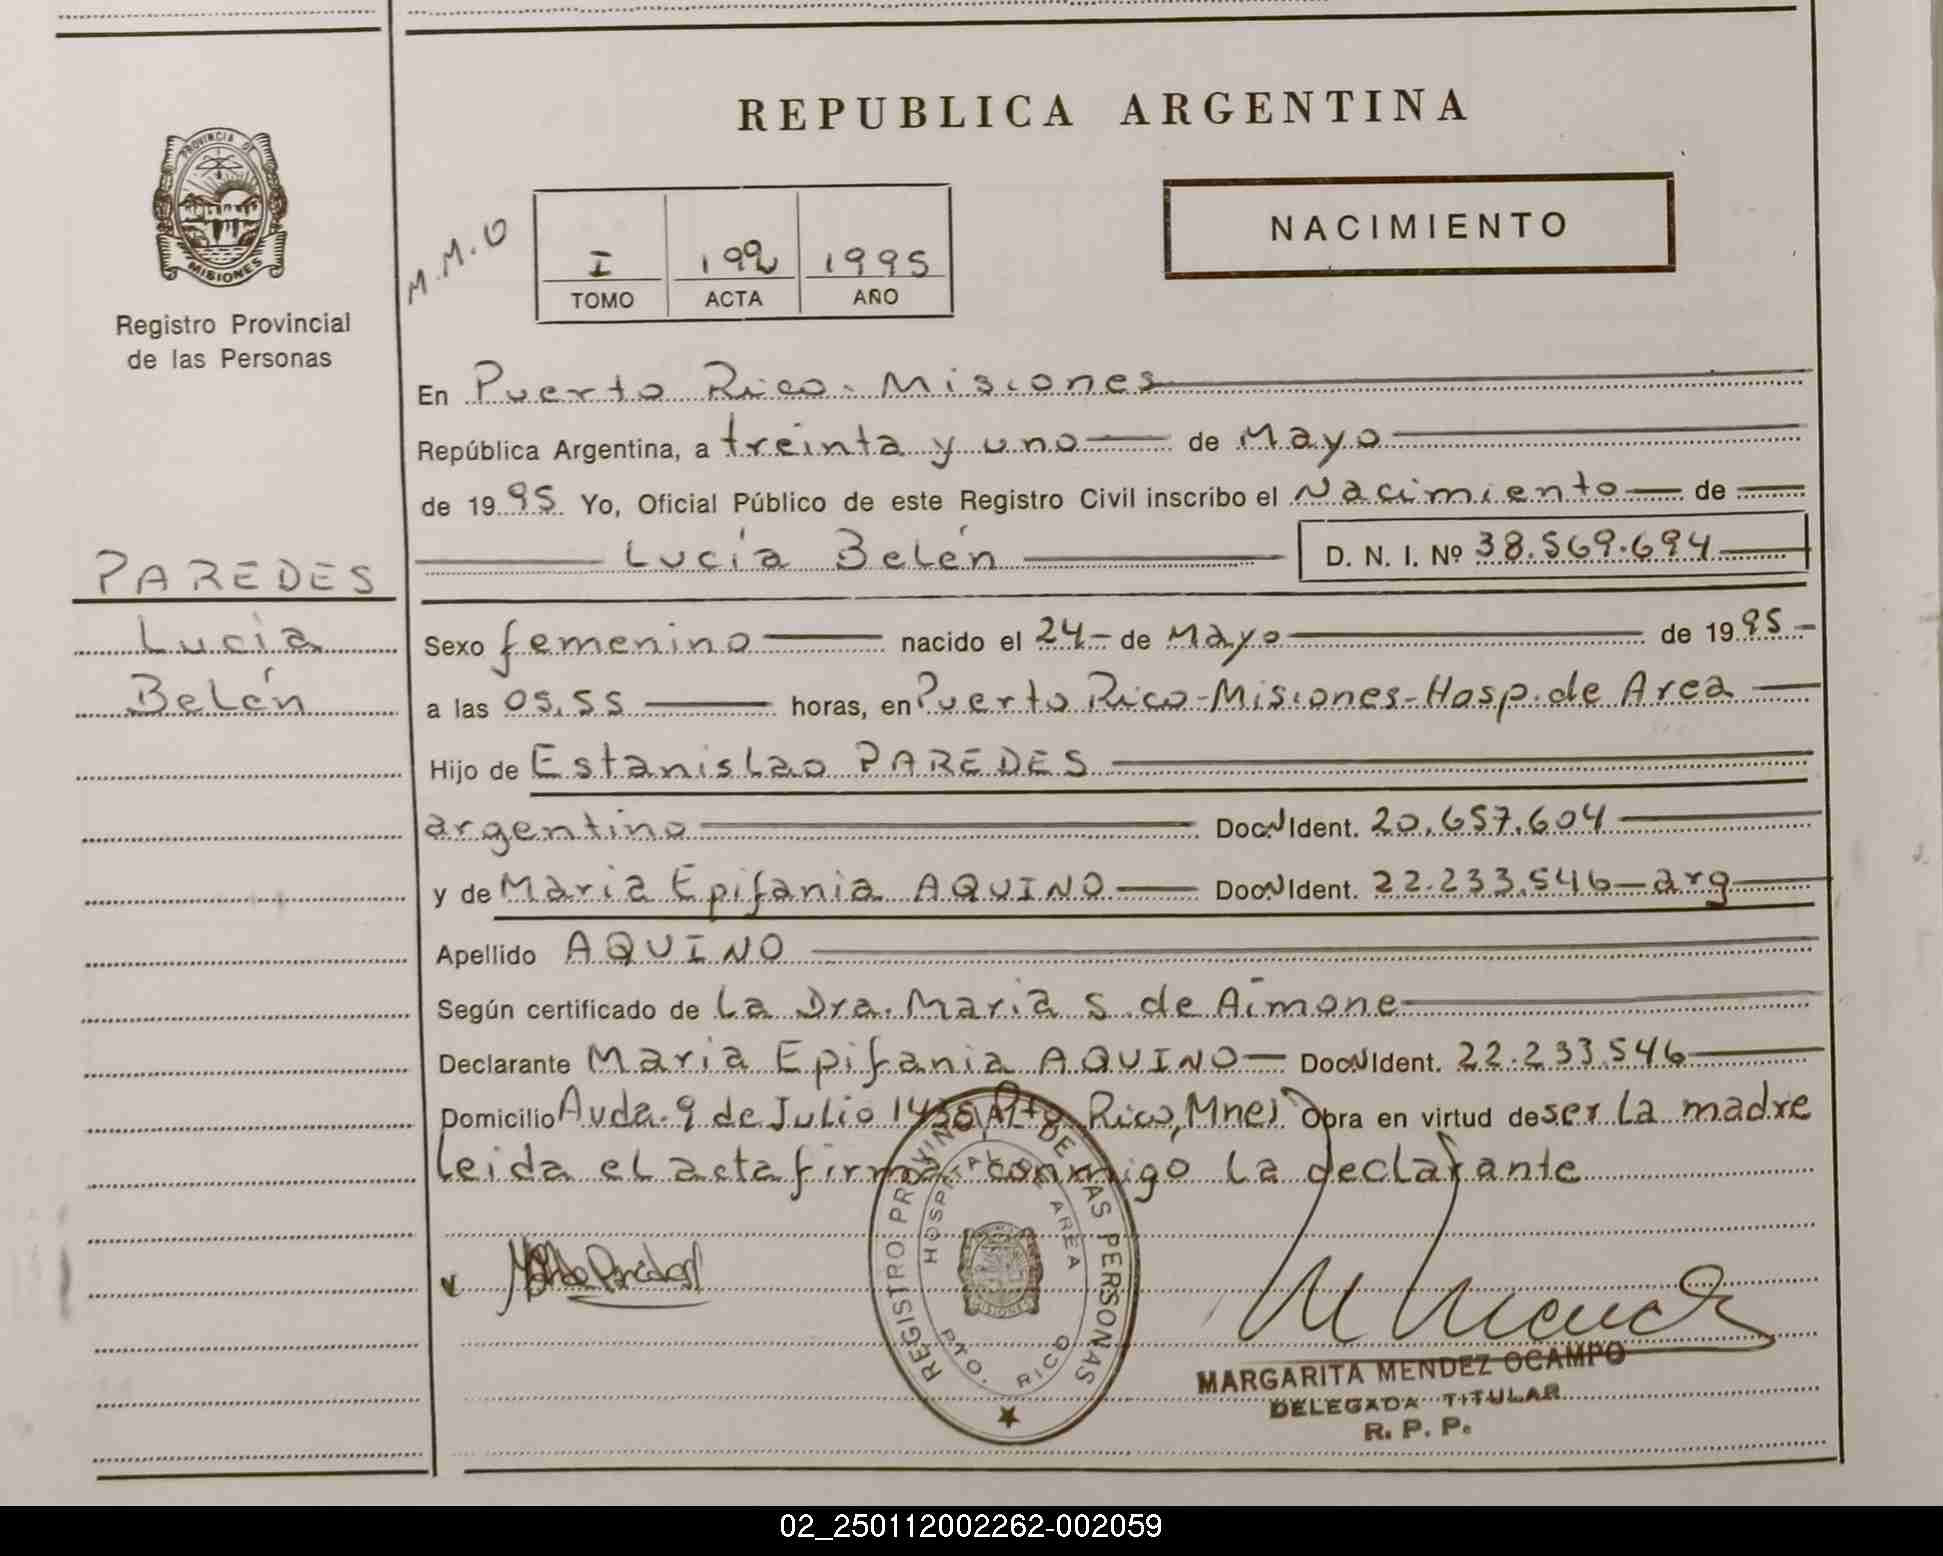 REPUBLICA ARGENTINA
PROVINCIA DE
MISIONES
Registro Provincial
de las Personas
M.M.O
I 199 1995
TOMO ACTA AÑO
NACIMIENTO
En Puerto Rico - Misiones
República Argentina, a treinta y uno de Mayo
de 1995 Yo, Oficial Público de este Registro Civil inscribo el Nacimiento de
Lucía Belén D. N. I. Nº 38.569.694
PAREDES
Lucía
Belén
Sexo femenino nacido el 24 de Mayo de 1995
a las 05,55 horas, en Puerto Rico-Misiones-Hosp. de Area
Hijo de Estanislao PAREDES
argentino Doc.N Ident. 20.657.604
y de Maria Epifania AQUINO Doc.N Ident. 22.233.546 - arg
Apellido AQUINO
Según certificado de la Dra. Maria S. de Aimone
Declarante Maria Epifania AQUINO Doc.N Ident. 22.233.546
Domicilio Avda. 9 de Julio Pto. Rico, Mnes Obra en virtud de ser la madre
leida el acta firma conmigo la declarante
REGISTRO PROVINCIAL DE LAS PERSONAS
HOSPITAL DE AREA
MISIONES
PTO. RICO
MARGARITA MENDEZ OCAMPO
DELEGADA TITULAR
R. P. P.
02_250112002262-002059